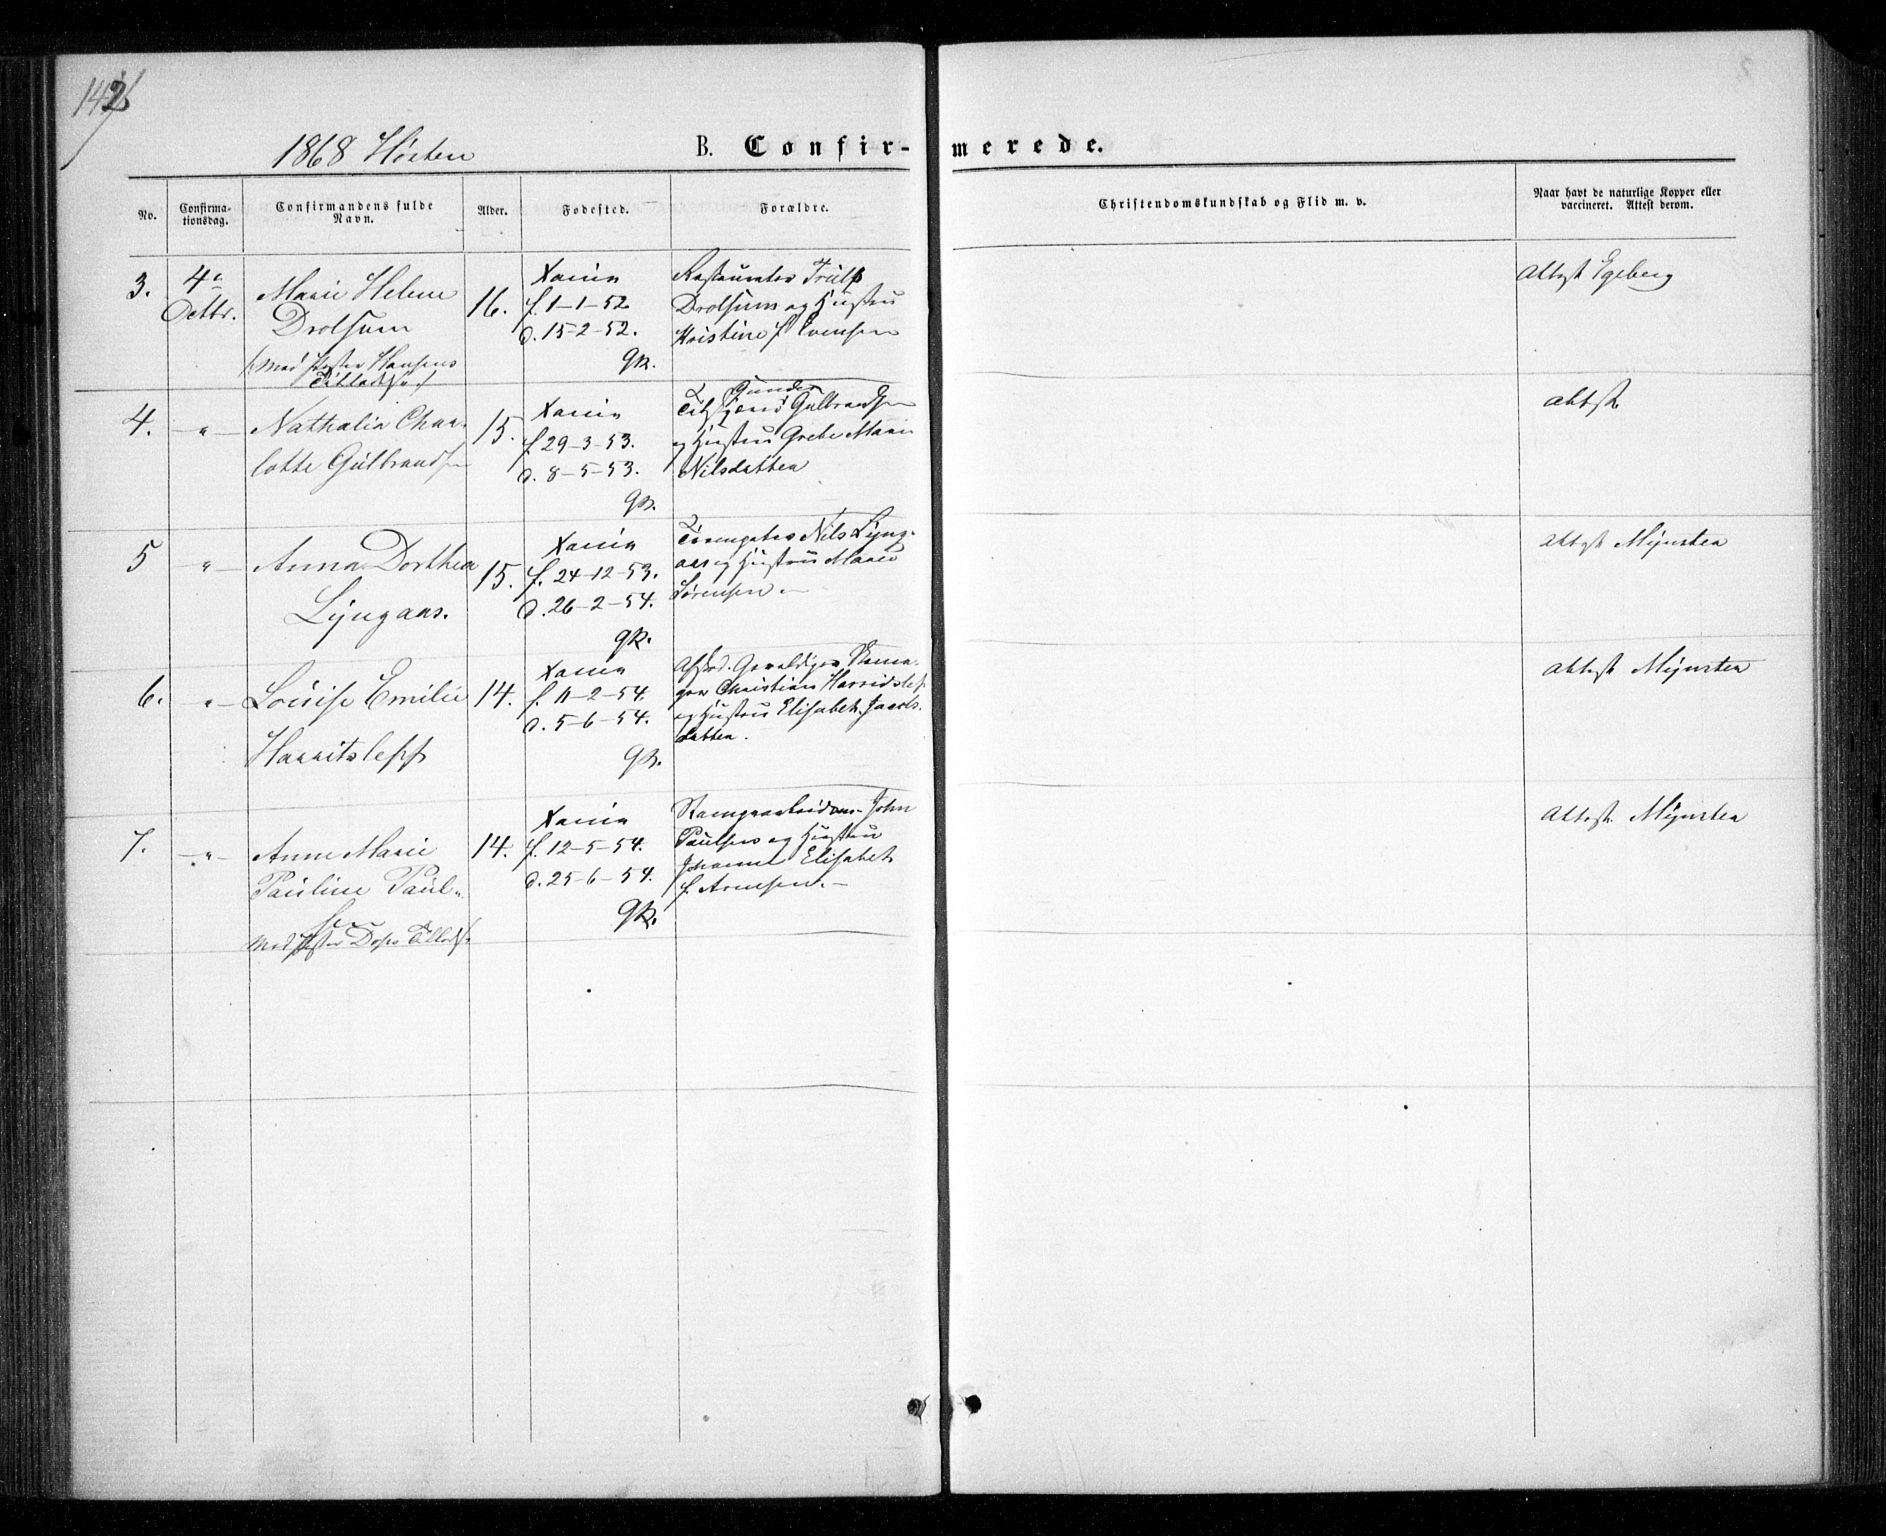 142
1868 Høsten
B. Confir-merede.
No.
Confirma-
tionsdag.
Confirmandens fulde
Navn.
Alder.
Fødested.
Forældre.
Christendomskundskab og Flid m. v.
Naar havt de naturlige Kopper eller
vaccineret. Attest derom.
3.
4de
Octbr.
Marie Helene
Drolsum
(Med Præsten Hansens
Tilladelse)
16.
Xania
f. 1-1-52
d. 15-2-52.
gK.
Restauratør Truls
Drolsum og Hustru
Kristine f. Evensen
Attest Egeberg
4.
-"-
Nathalia Char-
lotte Gulbrandsen
15.
Xania
f. 29-3-53.
d. 8-5-53.
gK.
Gunder
Gulbrandsen
og Hustru Grete Marie
Nilsdatter
attest
5
"-
Anna Dorthea
Lyngaas.
15.
Xania
f. 24-12-53.
d. 26-2-54.
gK.
Nils Lyng-
aas og Hustru Maren
Sørensen
attest Mynster
6.
"-
Louise Emilie
Harritsleff
14.
Xania
f. 11-2-54.
d. 5-6-54.
gK.
Afskd.
Christian Harridsleff
og Hustru Elisabet Jacobs-
datter.
attest Mynster
7.
-"-
Anne Marie
Pauline Paul-
sen
Med Præsten Tillads.
14.
Xania
f. 12-5-54.
d. 25-6-54.
gK.
John
Paulsen og Hustru
Johanne Elisabet
f. Arnesen.-
Attest. Mynster